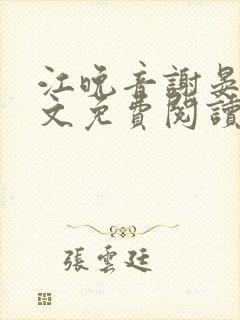 江晚音謝晏
文免費閱讀
張雲廷